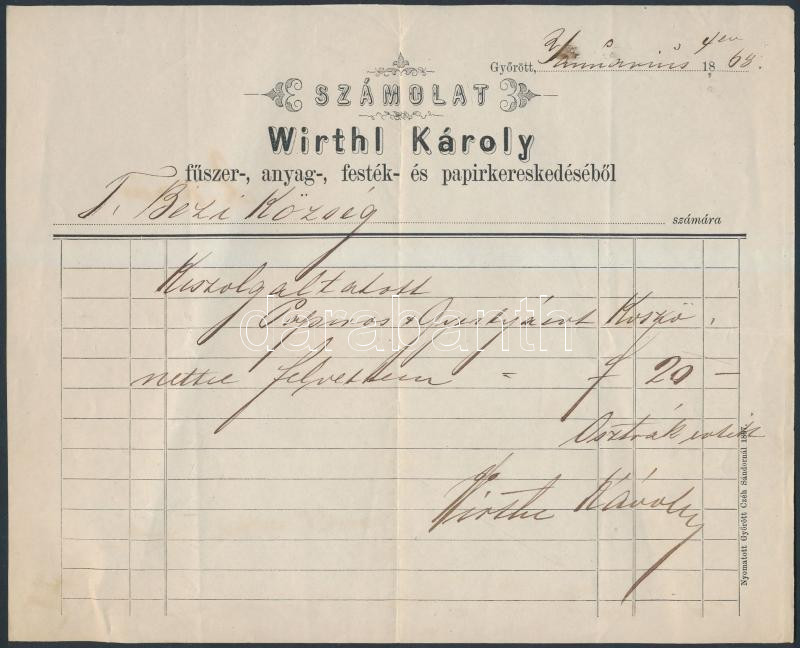 Győrött, Januarius 4én 1868.
SZÁMOLAT
Wirthl Károly
fűszer-, anyag-, festék- és papirkereskedéséből
T. Bezi Község számára
Kiszolgáltatott
Papiros & Gyertyáért
nettie felvettem = f 20 —
Osztrák
Wirthl Károly
Nyomatott Győrött Czéh Sándornál
darabanth